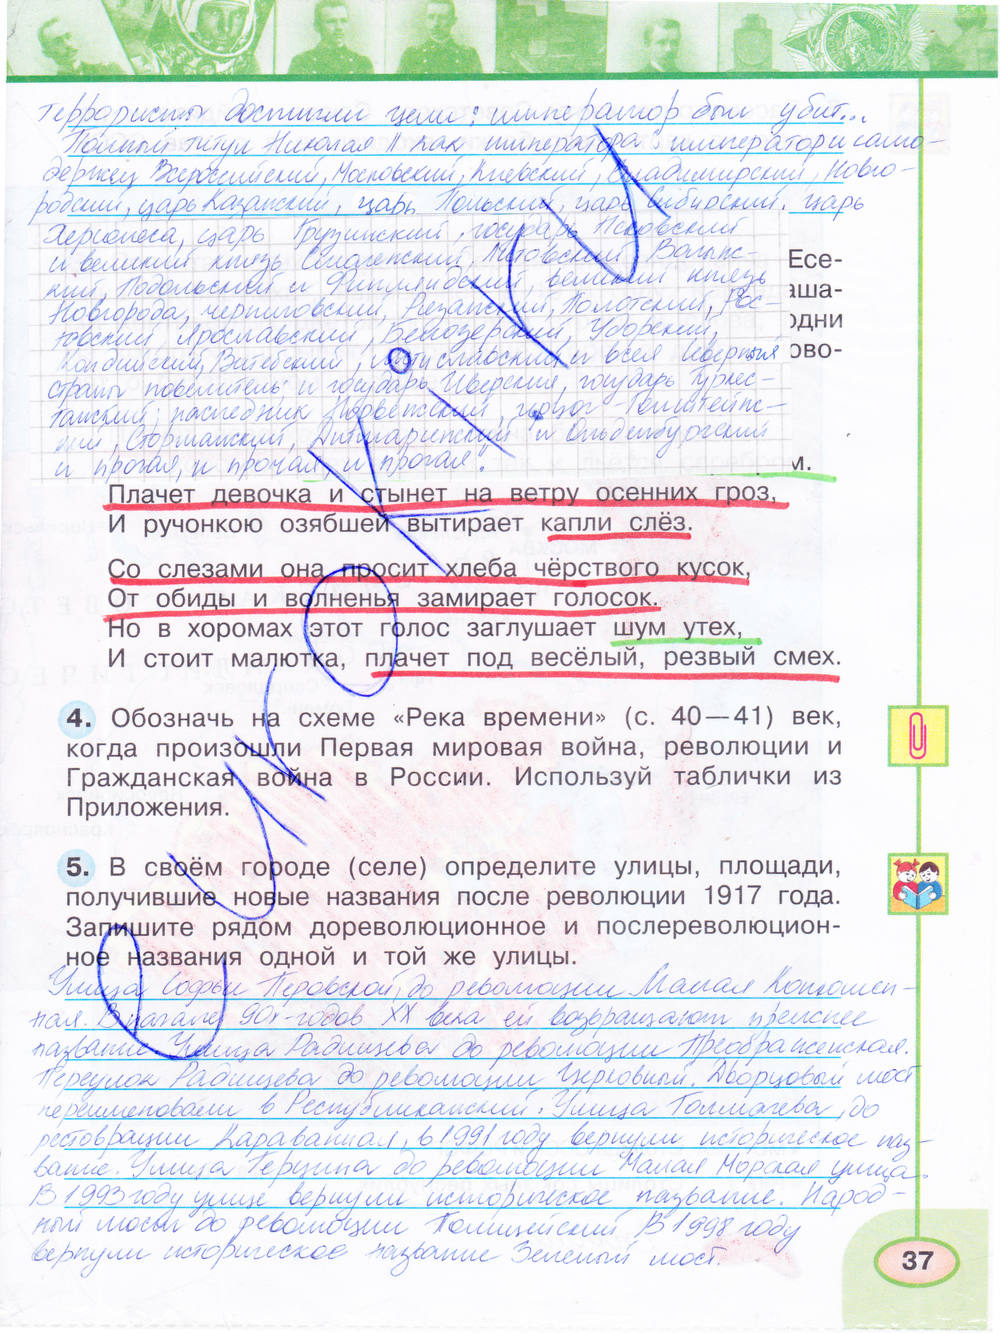 террористы достигли цели: император был убит...
Полный титул Николая II как императора "император и само-
держец Всероссийский, Московский, Киевский, Владимирский, Новго-
родский, царь Казанский, царь Польский, царь Сибирский, царь
Херсонеса, царь Грузинский, государь Псковский
и великий князь Смоленский, Литовский, Волынс-
кий, Подольский и Финляндский, великий князь
Новгорода, черниговский, Рязанский, Полотский, Рос-
товский Ярославский, Белозерский, Удорский,
Кондийский, Витебский, Мстиславский и всея Северныя
страны повелитель; и государь Иверския, государь Туркес-
танский; наследник Норвежский, герцог-Голштейнс-
кий, Стормарнский, Дитмарсенский и Ольденбургский
и прочая, и прочая, и прочая".
Есе-
аша-
одни
ово-
м.
Плачет девочка и стынет на ветру осенних гроз,
И ручонкою озябшей вытирает капли слёз.
Со слезами она просит хлеба чёрствого кусок,
От обиды и волненья замирает голосок.
Но в хоромах этот голос заглушает шум утех,
И стоит малютка, плачет под весёлый, резвый смех.
4. Обозначь на схеме «Река времени» (с. 40—41) век,
когда произошли Первая мировая война, революции и
Гражданская война в России. Используй таблички из
Приложения.
5. В своём городе (селе) определите улицы, площади,
получившие новые названия после революции 1917 года.
Запишите рядом дореволюционное и послереволюцион-
ное названия одной и той же улицы.
Улица Софьи Перовской, до революции Малая Конюшен-
ная. В начале 90х-годов XX века ей возвращают прежнее
название Улица Радищева до революции Преображенская.
Переулок Радищева до революции Церковный. Дворцовый мост
переименовали в Республиканский. Улица Толмачева, до
рестоврации Караванная, в 1991 году вернули историческое наз-
вание. Улица Герцена до революции Малая Морская улица.
В 1993 году улице вернули историческое название. Народ-
ный мост до революции Полицейский В 1998 году
вернули историческое название Зеленый мост.
37